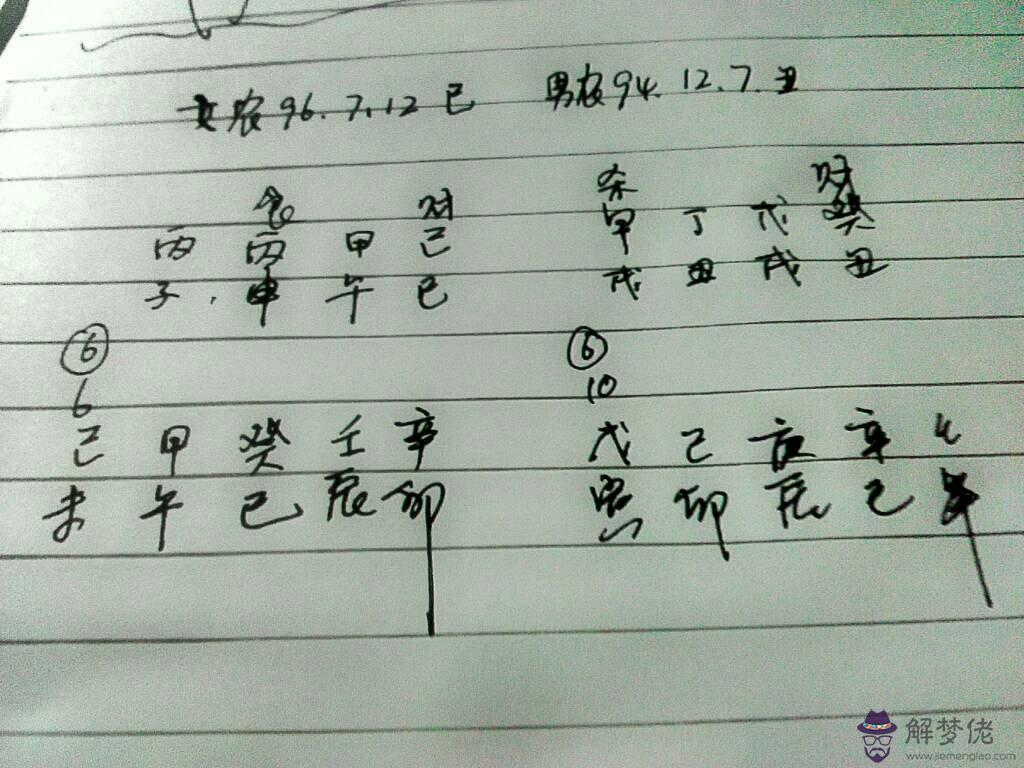 女农96.7.12巳 男农94.12.7.丑
食 财 杀 财
丙 丙 甲 己 甲 丁 戊 癸
子. 申 午 巳 戌 丑 戌 丑
⑥ ⑥
6 10
己 甲 癸 壬 辛 戊 己 庚 辛
未 午 巳 辰 卯 寅 卯 辰 巳
解梦佬
www.jiemenglao.com